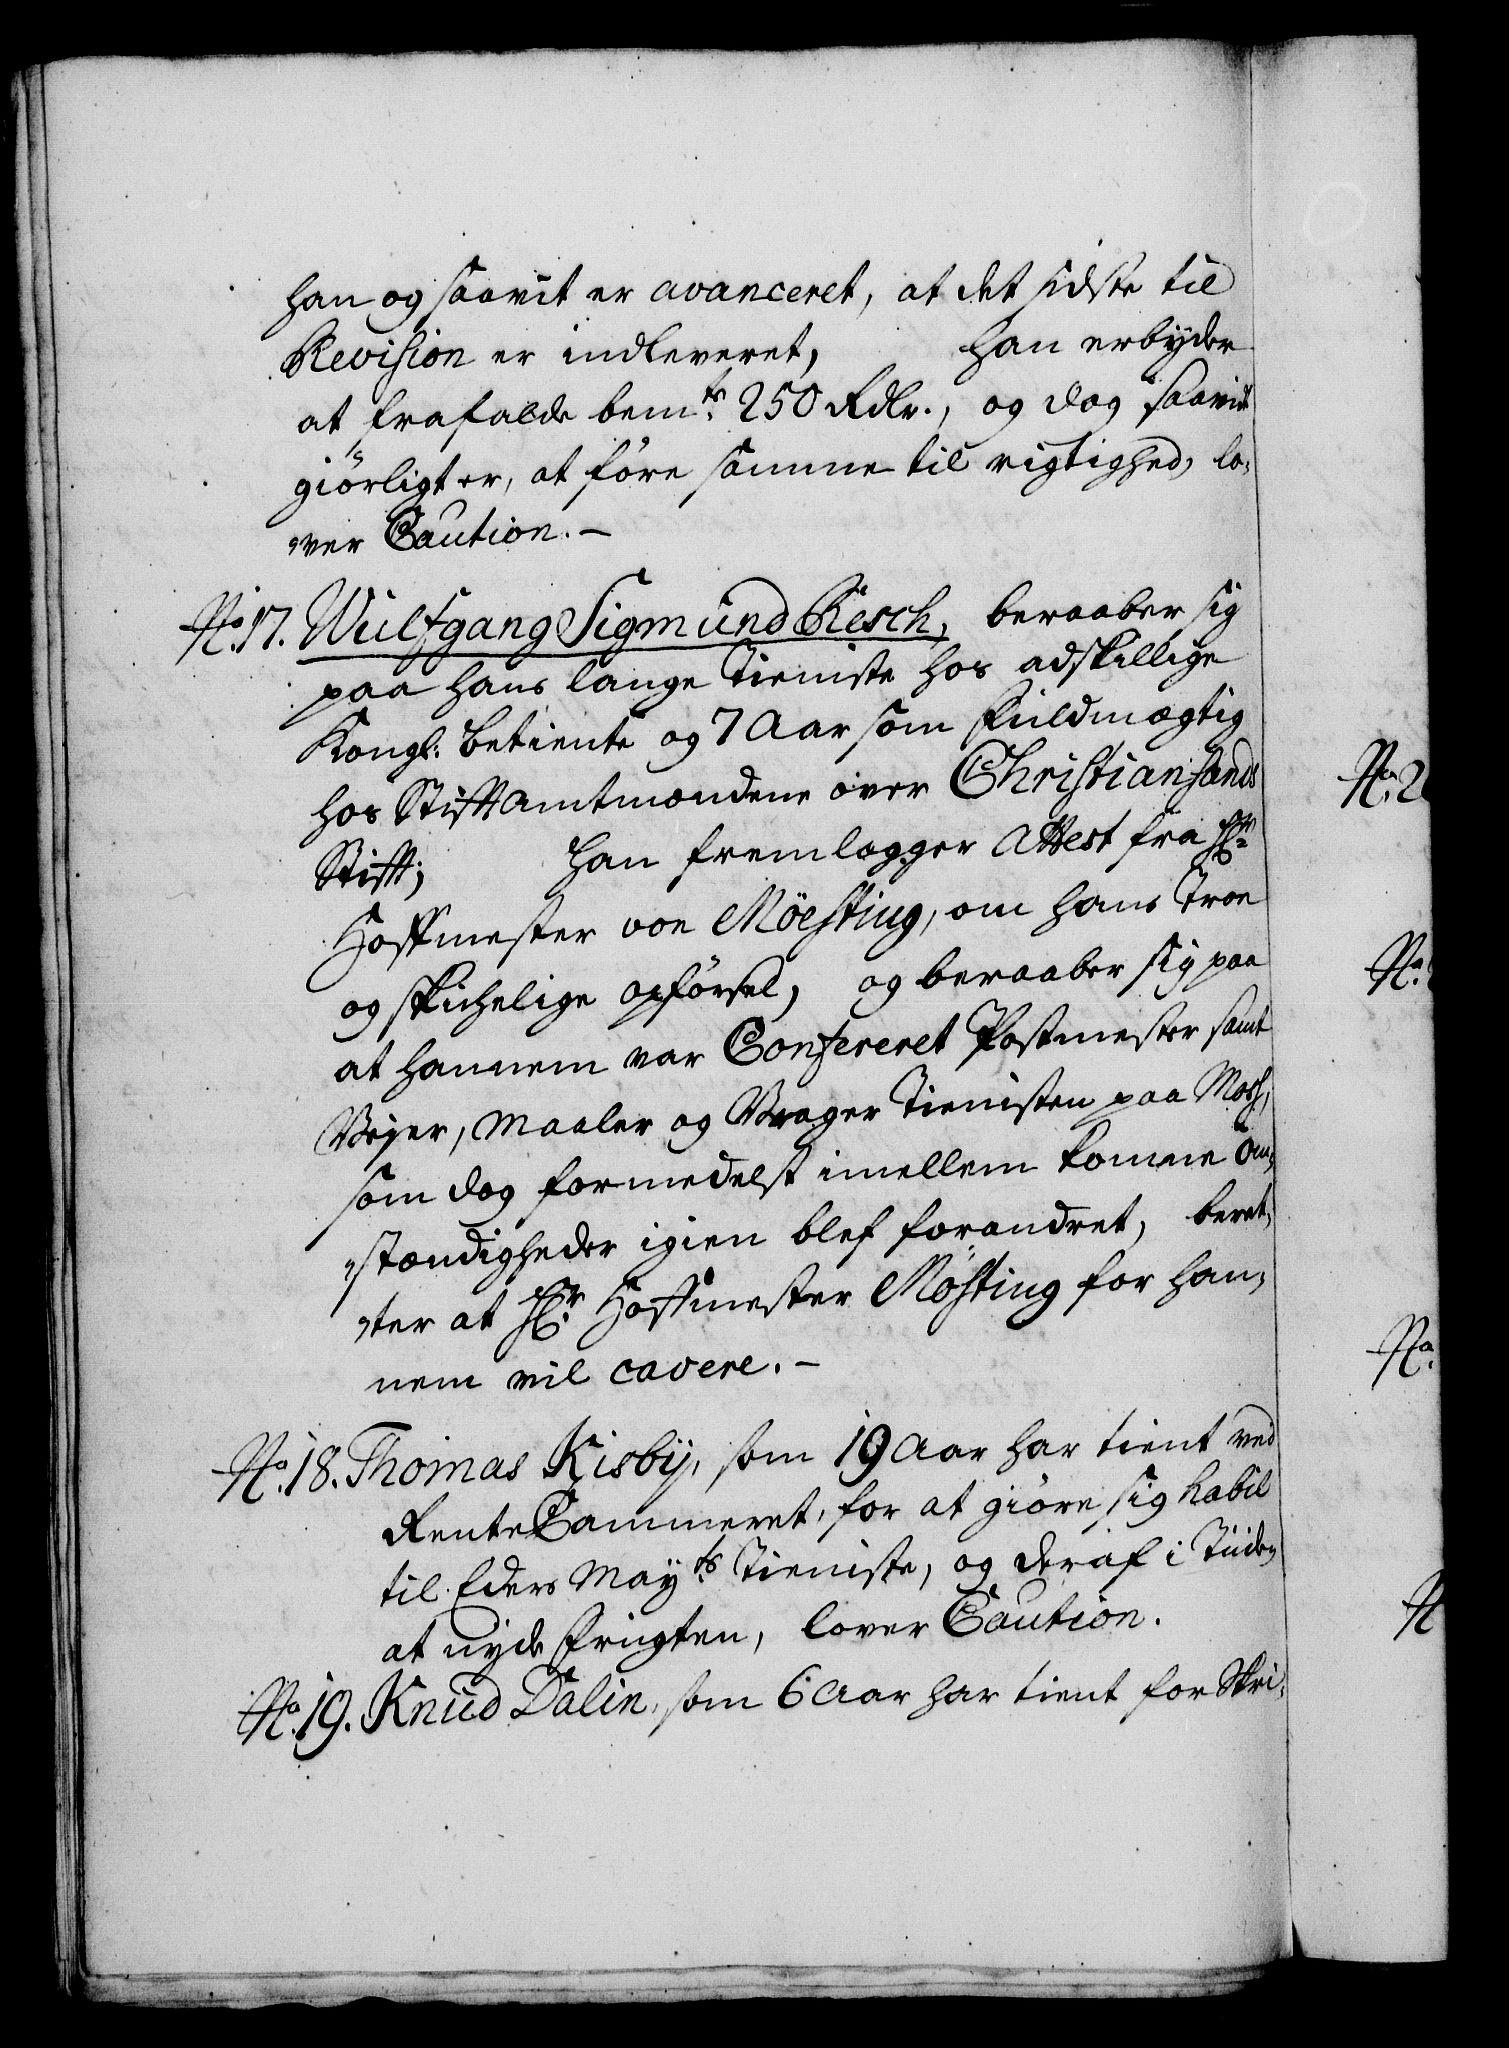 han og saavit er avanceret, at det sidste til
Revision er indleveret, han erbyder
at frafalde bemte 250 Rdlr., og dog saavit
giörligt er, at före samme til rigtighed, lo-
ver Caution.-
No. 17. Wulfgang Sigmund Resch, beraaber sig
paa hans lange Tieniste hos adskillige
Kongl: betiente og 7 Aar som fuldmægtig
hos Stifftamtmændene over Christiansands
Stifft; han fremlægger Attest fra Hr
Hoffmester von Möesting, om hans Troe
og skichelige opförsel, og beraaber sig paa
at hannem var Confereret Postmester samt
Vejer, Maaler og Vrager Tienisten paa Moss,
som dog formedelst imellem komne Om-
stændigheder igien blef forandret, beret-
ter at Hr. Hoffmester Mösting for han-
nem vil cavere.-
No. 18. Thomas Kisby, som 19 Aar har tient ved
RenteCammeret, for at giöre sig habil
til Eders Mayts Tieniste, og deraf i Tiiden
at nyde frugten, lover Caution.
No. 19. Knud Dalin, som 6 Aar har tient for Skri-
No. 2
No.
No.
N